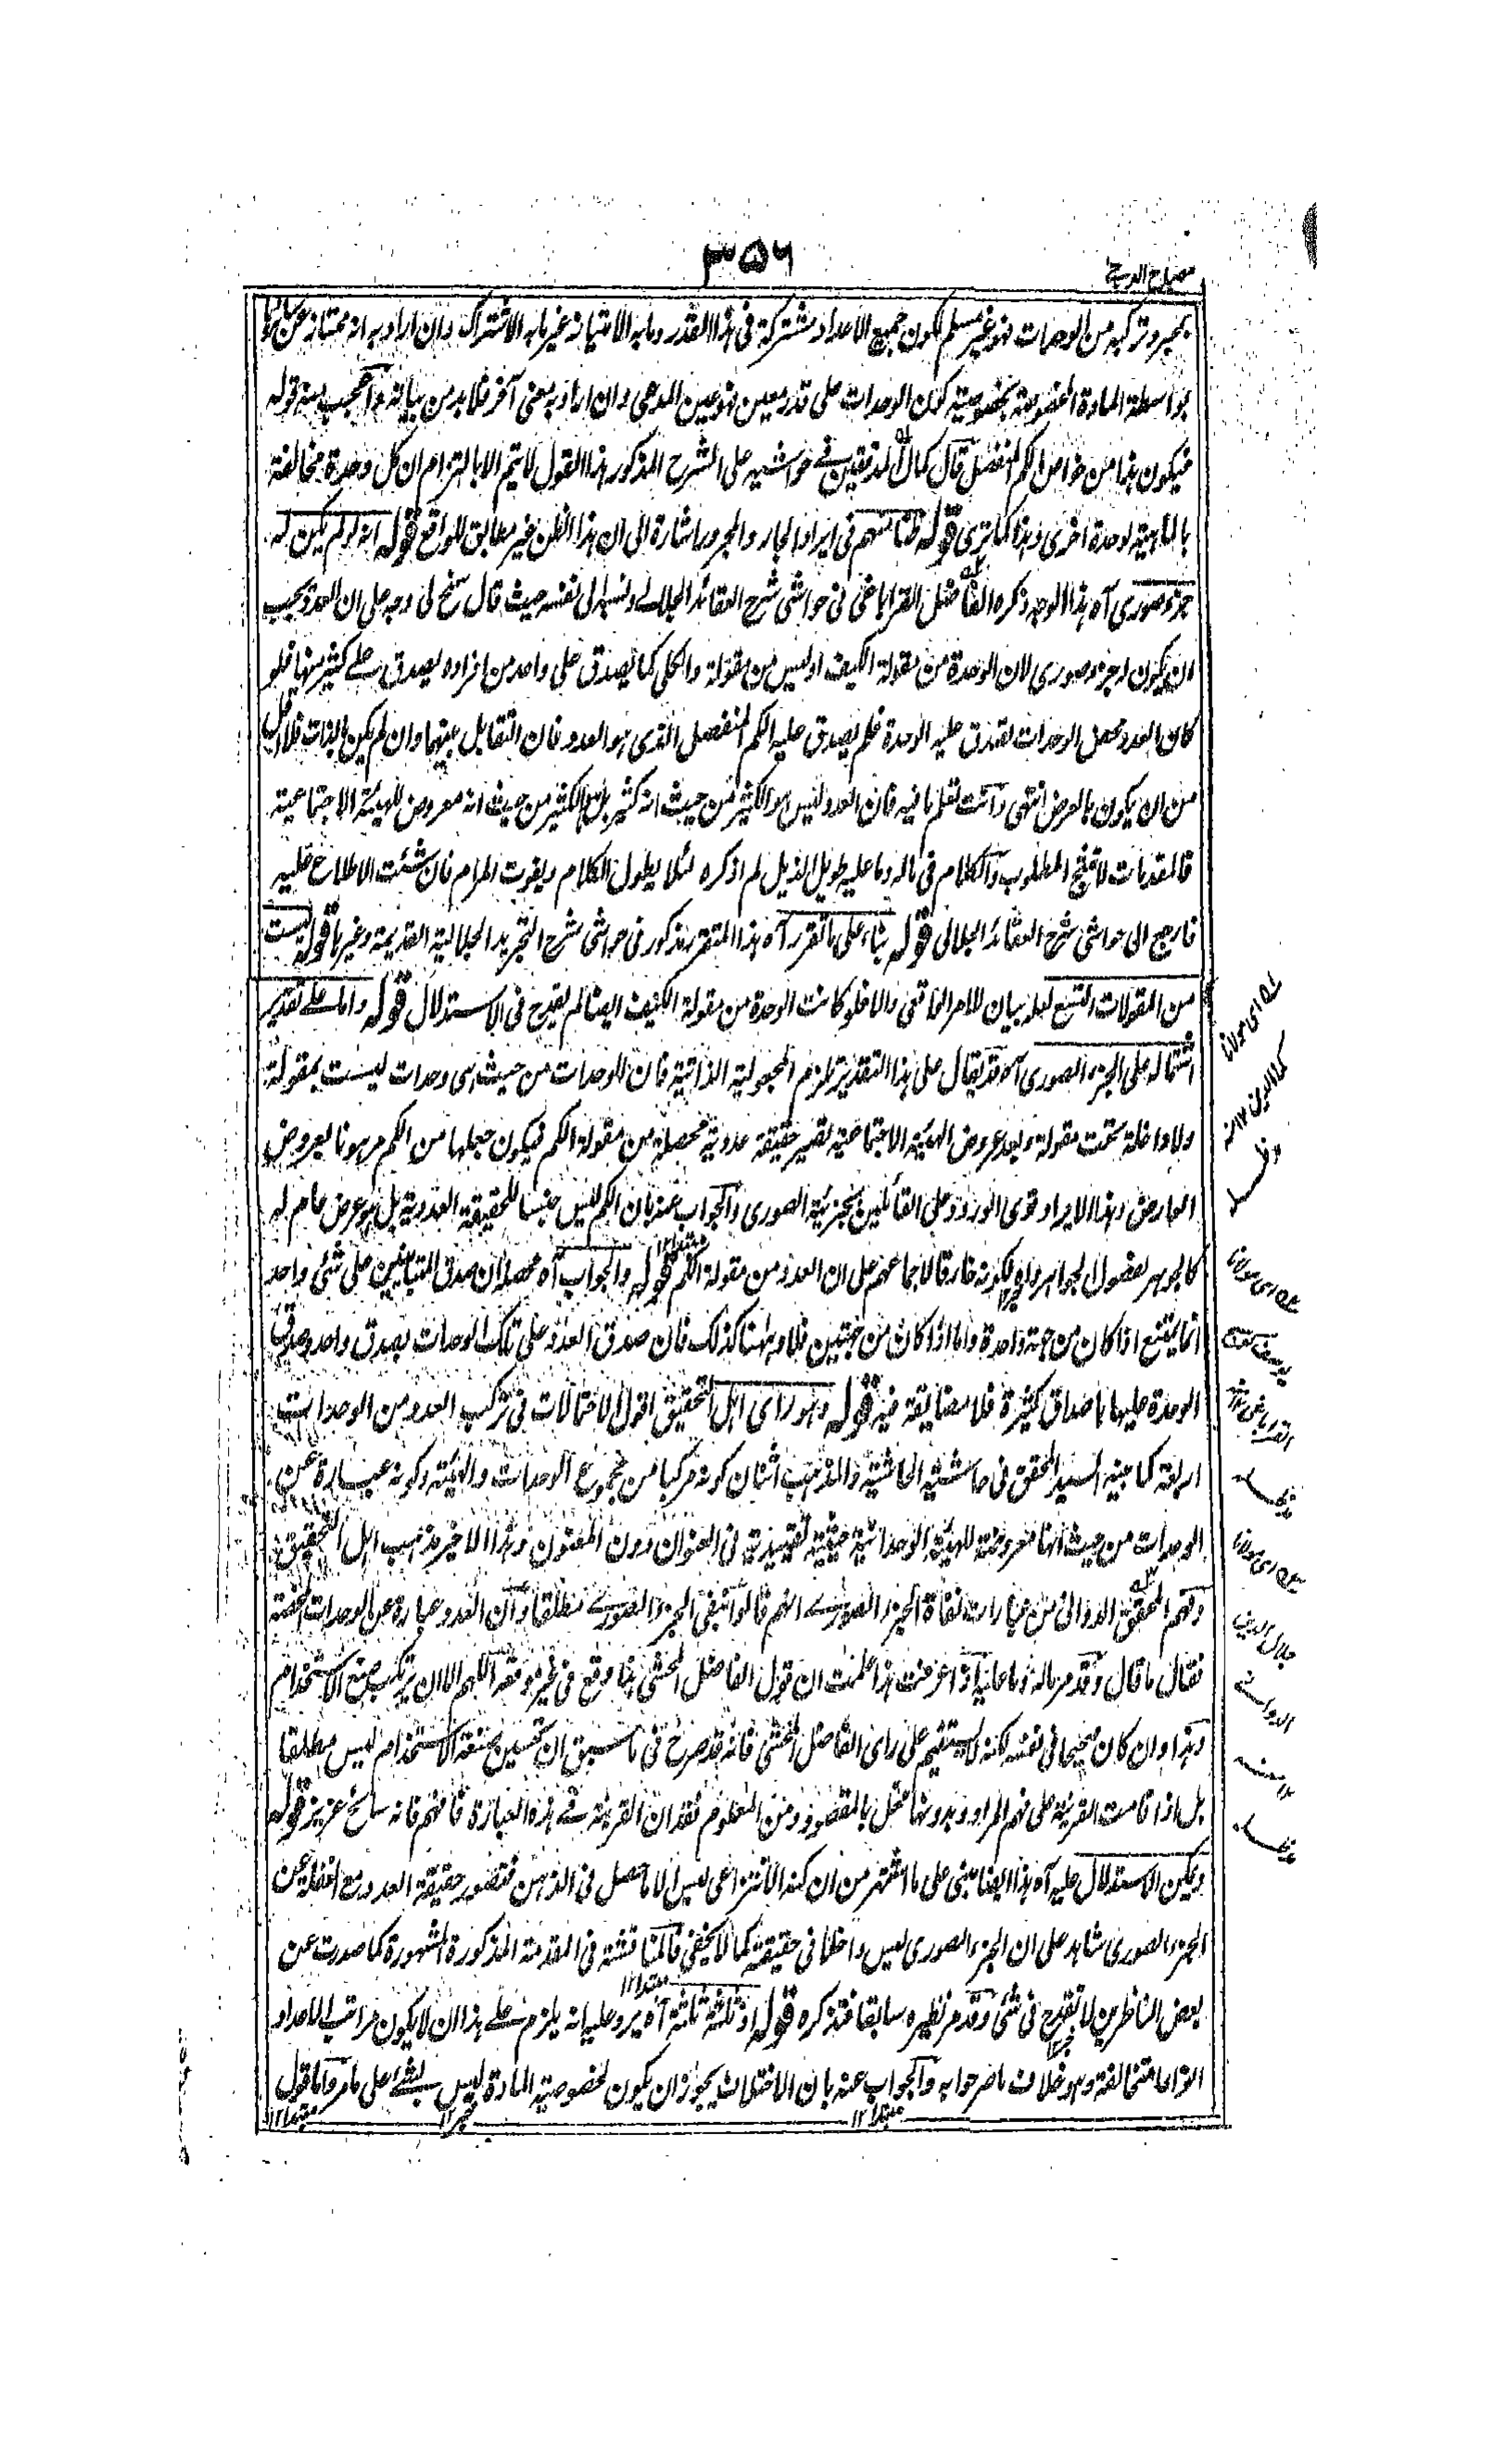 ۳۵۶
مصباح الدجى
بمجرد تركبه من الوحدات فهو غير مسلم لكون جميع الاعداد مشتركة فى هذا القدر وما به الامتياز غير ما به الاشتراك وان اراد به انه ممتاز عن
بواسطة المادة المخصوصة بخصوصية كون الوحدات على قدر معين فهو عين المدعى وان اراد به معنى آخر فلا بد من بيانه واعجب منه قوله
فيكون هذا من خواص الكم المنفصل قال كمال المدققين فى حواشيه على الشرح المذكور هذا القول لا يتم الا بالتزام ان كل وحدة مخالفة
بالماهية لوحدة اخرى وهذا كما ترى قوله ظنا منهم فى ايراد الجار والمجرور اشارة الى ان هذا الظن غير مطابق للواقع قوله انه لو لم يكن له
جزء صورى آه هذا الوجه ذكره الفاضل القراباغى فى حواشى شرح العقائد الجلالى ونسبه الى نفسه حيث قال سنح لى وجه على ان العدد يجب
ان يكون له جزء صورى لان الوحدة من مقولة الكيف او ليس من مقولة والكلى كما يصدق على واحد من افراده يصدق على كثير منها فلو
كان العدد محض الوحدات لصدق عليه الوحدة فلم يصدق عليه الكم المنفصل الذى هو العدد فان التقابل بينهما وان لم يكن بالذات فلا اقل
من ان يكون بالعرض انتهى وانت تعلم ما فيه فان العدد ليس هو الكثير من حيث انه كثير بل الكثير من حيث انه معروض للهيئة الاجتماعية
فالمقدمات لا تنتج المطلوب والكلام فى ماله وما عليه طويل الذيل لم اذكره لئلا يطول الكلام ويفوت المرام فان شئت الاطلاع عليه
فارجع الى حواشى شرح العقائد الجلالى قوله بناء على ما تقرر آه هذا المتقرر مذكور فى حواشى شرح التجريد الجلالية القديمة وغيرها قوله ليست
من المقولات التسع لعله بيان للامر الواقعى والا فلو كانت الوحدة من مقولة الكيف ايضا لم يقدح فى الاستدلال قوله واما على تقدير
اشتماله على الجزء الصورى آه قد يقال على هذا التقدير تلزم المجعولية الذاتية فان الوحدات من حيث هى وحدات ليست بمقولة
ولا داخلة تحت مقولة وبعد عروض الهيئة الاجتماعية تصير حقيقة عددية محصلة من مقولة الكم فيكون جعلها من الكم مرهونا بعروض
العارض وهذا الايراد قوى الورود على القائلين بجزئية الصورى والجواب عنه بان الكم ليس جنسا للحقيقة العددية بل هو عرض عام له
كالجوهر لفصول الجواهر واه لكونه خارقا لاجماعهم على ان العدد من مقولة الكم قوله والجواب آه محصله ان صدق المتباينين على شئ واحد
انما يمتنع اذا كان من جهة واحدة واما اذا كان من جهتين فلا وههنا كذلك فان صدق العدد على تلك الوحدات بصدق واحد وصدق
الوحدة عليها باصداق كثيرة فلا مضايقة فيه قوله وهو راى اهل التحقيق اقول الاحتمالات فى تركب العدد من الوحدات
اربعة كما بينه السيد المحقق فى حاشية الحاشية والمذهب اثنان كونه مركبا من مجموع الوحدات والهيئة وكونه عبارة عن
الوحدات من حيث انها معروضة للهيئة الوحدانية حيثية تقييدية فى العنوان دون المعنون وهذا الاخير مذهب اهل التحقيق
وفهم المحقق الدوانى من عبارات نفاة الجزء الصورى انهم قالوا بنفى الجزء الصورى مطلقا وان العدد عبارة عن الوحدات المحضة
فقال ما قال وقد مر ماله وما عليه اذا عرفت هذا علمت ان قول الفاضل المحشى هذا وقع فى غير موقعه اللهم الا ان يرتكب صنع الاستخدام
وهذا وان كان صحيحا فى نفسه لكنه لا يستقيم على راى الفاضل المحشى فانه قد صرح فى ما سبق ان تحسين صنعة الاستخدام ليس مطلقا
بل اذا قامت القرينة على فهم المراد وبدونها مخل بالمقصود ومن المعلوم فقدان القرينة فى هذه العبارة فافهم فانه سانح عزيز قوله
ويمكن الاستدلال عليه آه هذا ايضا مبنى على ما اشتهر من ان كنه الانتزاعى ليس الا ما حصل فى الذهن فتصور حقيقة العدد مع الغفلة عن
الجزء الصورى شاهد على ان الجزء الصورى ليس داخلا فى حقيقته كما لا يخفى فالمناقشة فى المقدمة المذكورة المشهورة كما صدرت عن
بعض الناظرين لا تقدح فى شئ وقد مر نظيره سابقا فتذكره قوله او ثلثة ثلثة آه يرد عليه انه يلزم على هذا ان لا يكون مراتب الاعداد
انواعا متخالفة وهو خلاف ما صرحوا به والجواب عنه بان الاختلاف يجوز ان يكون لخصوصية المادة ليس بشئ على ما مر واما قول
مبتدا ١٢
خبر ١٢
مبتدا ١٢
له اى مولانا
كمال الدين ١٢ منه
مدظله
له اى مولانا
يوسف
القراباغى
له اى مولانا
جلال الدين
الدوانى
١٢ منه
مدظله